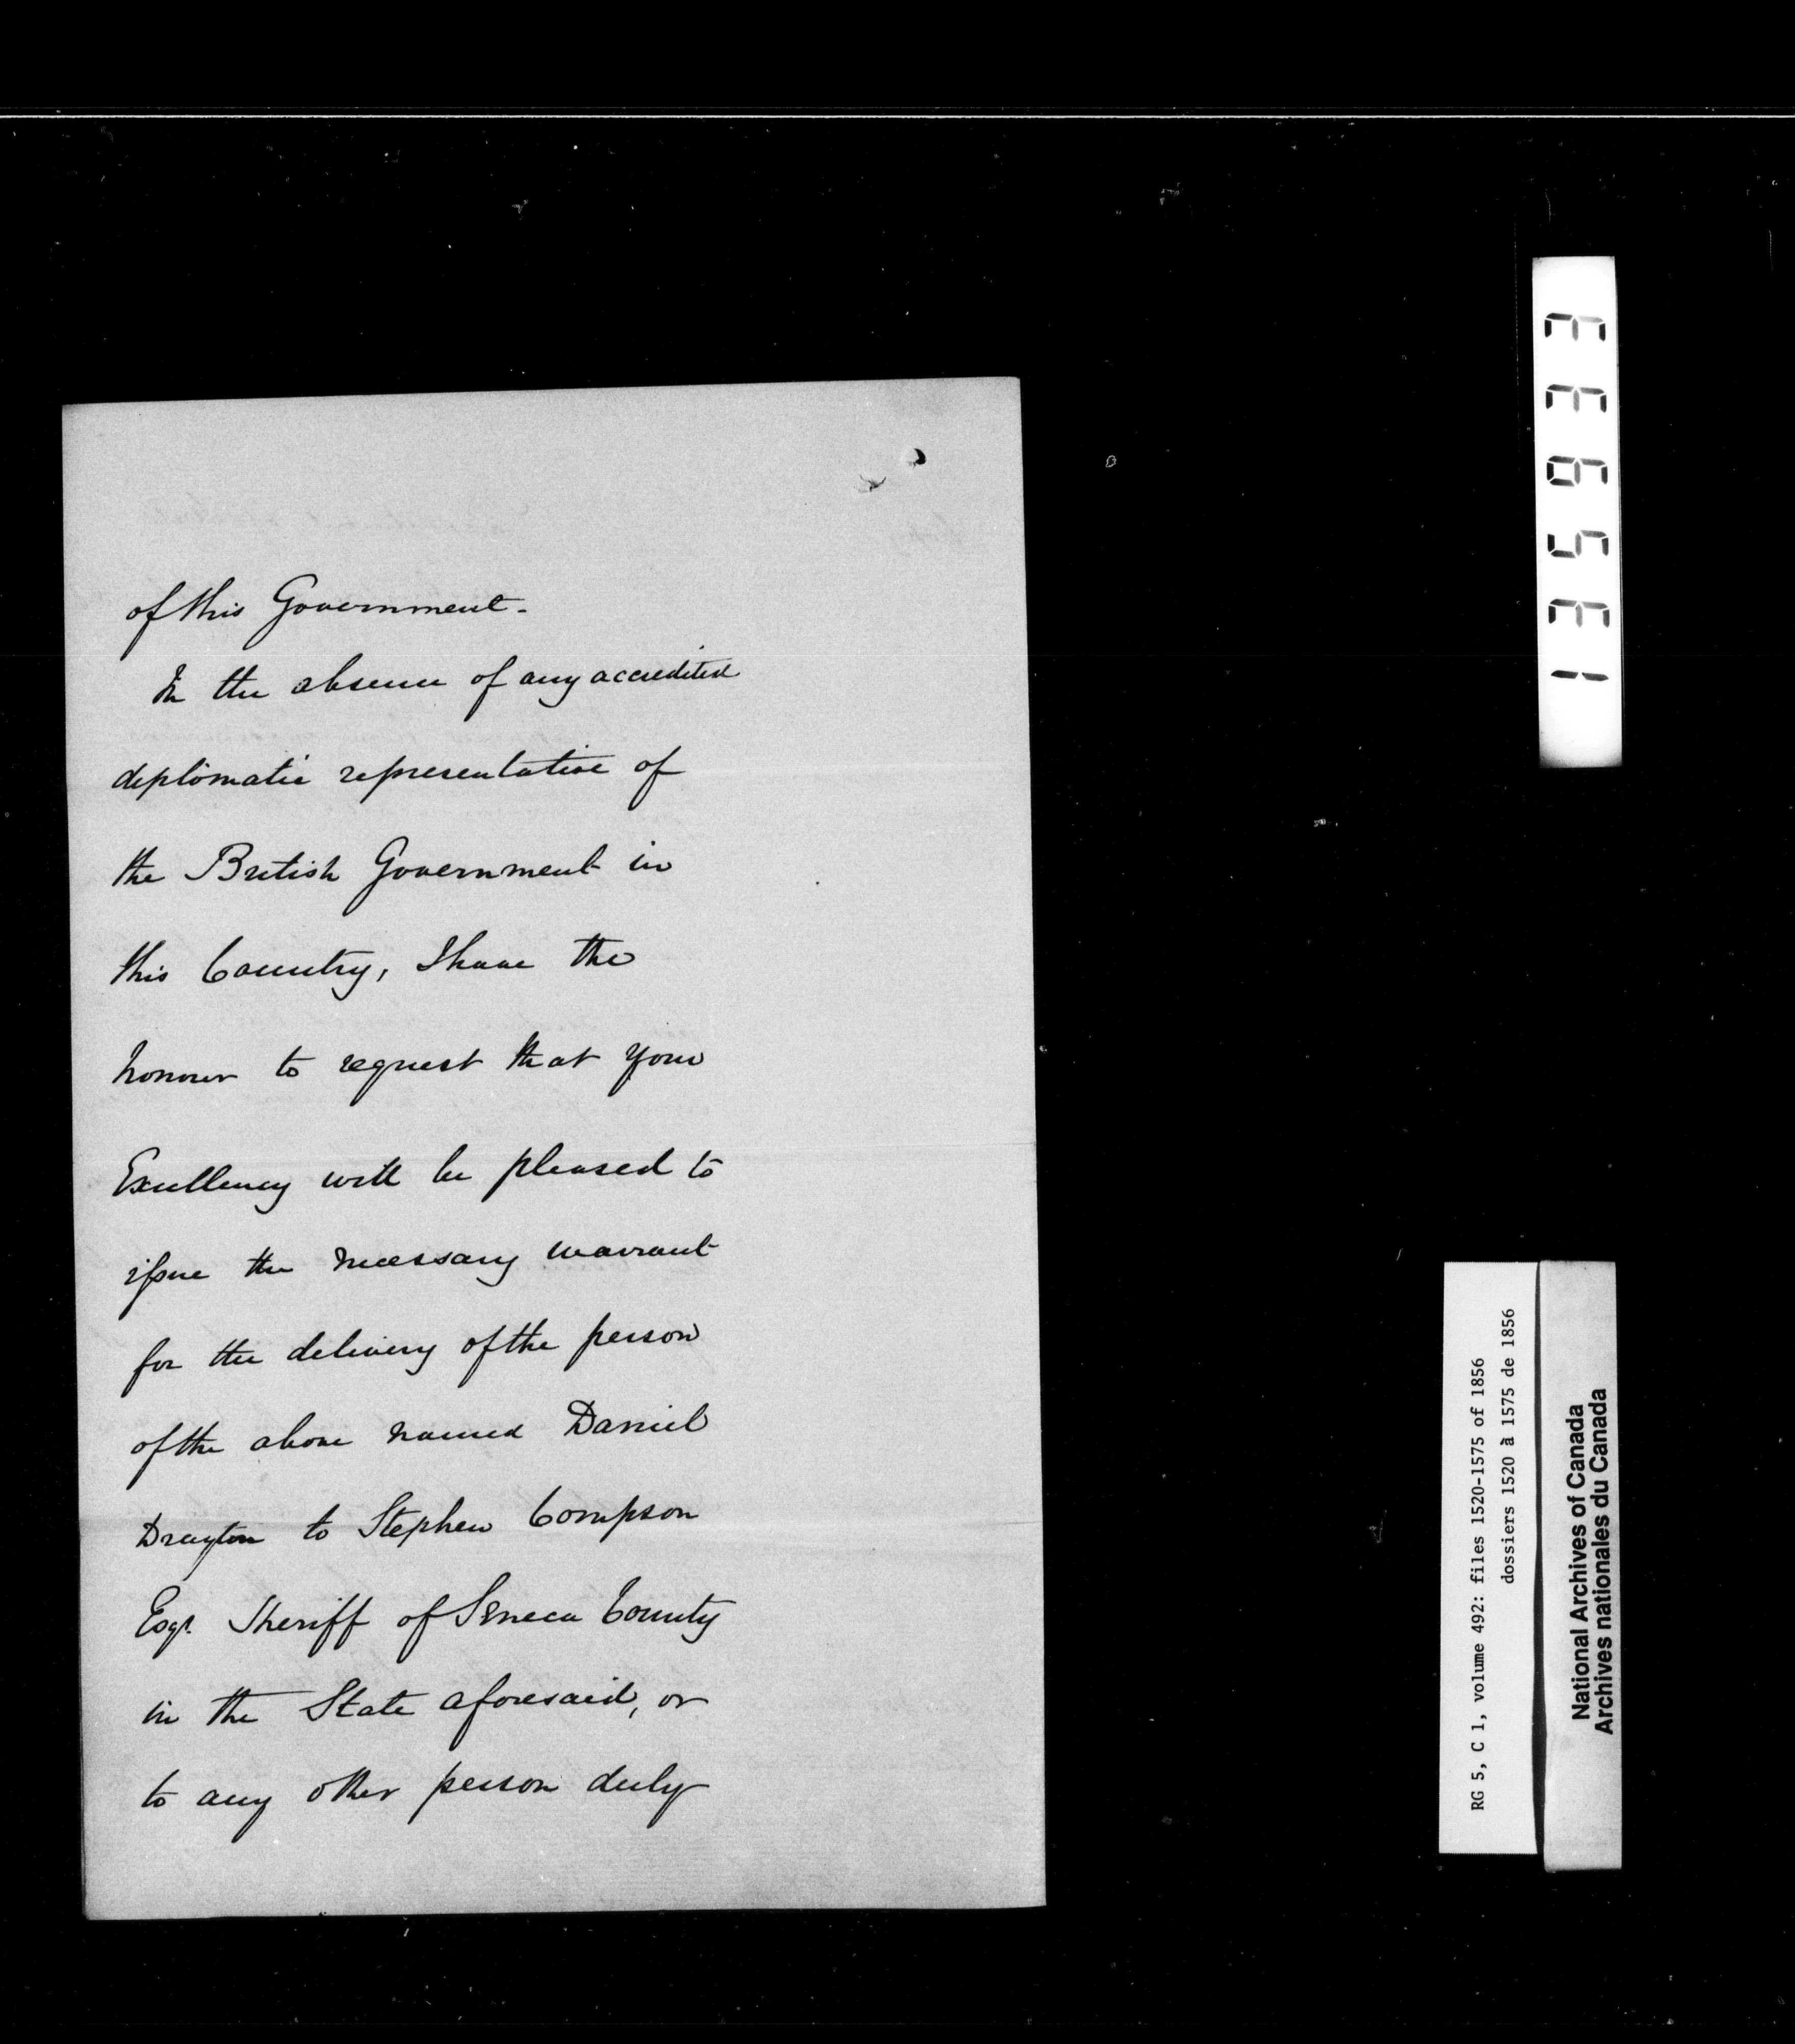 of this Government.
In the absence of any accredited
diplomatic representative of
the British Government in
this Country, I have the
honour to request that your
Excellency will be pleased to
issue the necessary warrant
for the delivery of the person
of the above named Daniel
Drayton to Stephen Compson
Esqr. Sheriff of Seneca County
in the State aforesaid, or
to any other person duly
135633
RG 5, C 1, volume 492: files 1520-1575 of 1856
dossiers 1520 à 1575 de 1856
National Archives of Canada
Archives nationales du Canada